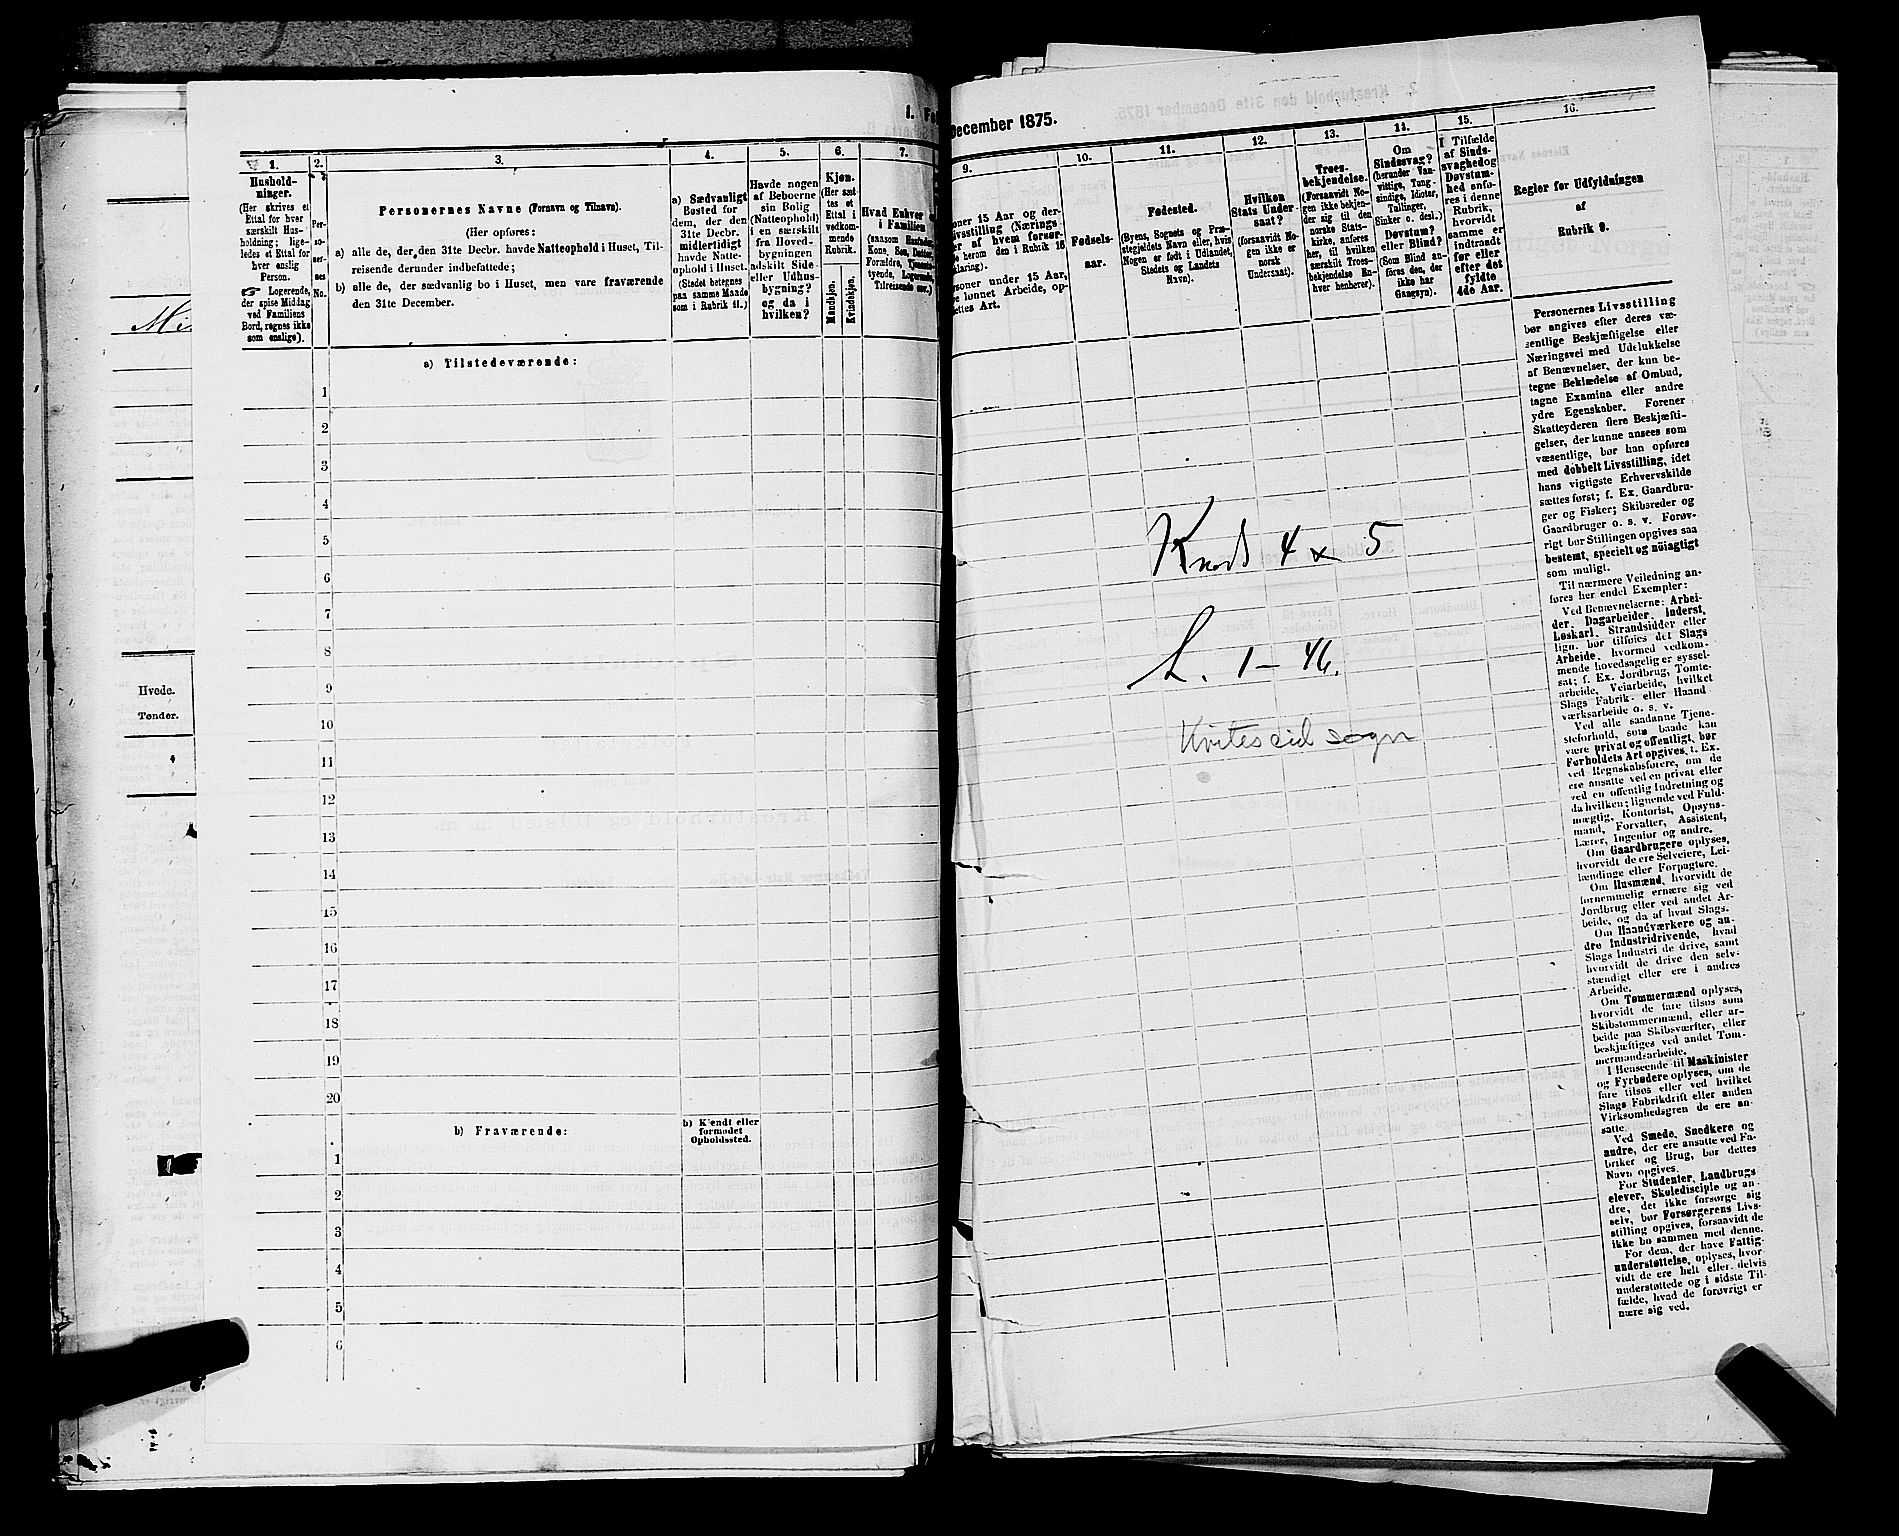 1. Fo
December 1875.
1.
Hushold-
ninger.
(Her skrives et
Ettal for hver
særskilt Hus-
holdning; lige-
ledes et Ettal for
hver enslig
Person.
Logerende,
der spise Middag
ved Familiens
Bord, regnes ikke
som enslige).
2.
Per-
so-
ner-
nes
No.
3.
Personernes Navne (Fornavn og Tilnavn).
(Her opføres:
a) alle de, der den 31te Decbr. havde Natteophold i Huset, Til-
reisende derunder indbefattede;
b) alle de, der sædvanlig bo i Huset, men vare fraværende
den 31te December.
4.
a) Sædvanligt
Bosted for
dem, der den
31te Decbr.
midlertidigt
havde Natte-
ophold i Huset.
(Stedet betegnes
paa samme Maade
som i Rubrik 11.)
5.
Havde nogen
af Beboerne
sin Bolig
(Natteophold)
i en særskilt
fra Hoved-
bygningen
adskilt Side-
eller Udhus-
bygning?
og da i
hvilken?
6.
Kjøn.
(Her sæt-
tes et
Ettal i
vedkom-
mende
Rubrik.
Mandkjøn.
Kvindekjøn.
7.
Hvad Enhver
i Familien
(saasom
Kone, Søn,
Forældre,
tyende,
Tilreisende osv.)
9.
oner 15 Aar og der-
10.
Fødsels-
aar.
11.
Fødested.
(Byens, Sognets og Præ-
stegjeldets Navn eller, hvis
Nogen er født i Udlandet,
Stedets og Landets
Navn).
12.
Hvilken
Stats Under-
saat?
(forsaavidt No-
gen ikke er
norsk
Undersaat).
13.
Troes-
bekjendelse.
(Forsaavidt No-
gen ikke bekjen-
der sig til den
norske Stats-
kirke, anføres
her, til hvilken
særskilt Troes-
bekjendelse En-
hver henhører).
14.
Om
Sindssvag?
(herunder Van-
vittige, Tung-
sindige, Idioter,
Tullinger,
Sinker o. desl.)
Døvstum?
eller Blind?
(Som Blind an-
føres den, der
ikke har
Gangsyn).
15.
I Tilfælde
af Sinds-
svaghed og
Døvstum-
hed anfø-
res i denne
Rubrik,
hvorvidt
samme er
indtraadt
før eller
efter det
fyldte
4de Aar.
16.
Regler for Udfyldningen
af
Rubrik 9.
a) Tilstedeværende:
1
2
3
4
5
6
7
8
9
10
11
12
13
14
15
16
17
18
19
20
b) Fraværende:
b) Kjendt eller
formodet
Opholdssted.
1
2
3
4
5
6
Hvede.
Tønder.
4 x 5
L. 1 – 46.
Kviteseid sogn
Personernes Livsstilling
bør angives efter deres væ-
sentlige Beskjæftigelse eller
Næringsvei med Udelukkelse
af Benævnelser, der kun be-
tegne Beklædelse af Ombud,
tagne Examina eller andre
ydre Egenskaber. Forener
Skatteyderen flere Beskjæfti-
gelser, der kunne ansees som
væsentlige, bør han opføres
med dobbelt Livsstilling, idet
hans vigtigste Erhvervskilde
sættes først; f. Ex. Gaardbru-
ger og Fisker; Skibsreder og
Gaardbruger o. s. v. Forøv-
rigt bør Stillingen opgives saa
bestemt, specielt og nøiagtigt
som muligt.
Til nærmere Veiledning an-
føres her endel Exempler:
Ved Benævnelserne: Arbei-
der, Dagarbeider, Inderst,
Løskarl, Strandsidder eller
lign. bør tilføies det Slags
Arbeide, hvormed vedkom-
mende hovedsagelig er syssel-
sat; f. Ex. Jordbrug, Tomte-
arbeide, Veiarbeide, hvilket
Slags Fabrik- eller Haand-
værksarbeide o. s. v.
Ved alle saadanne Tjene-
steforhold, som baade kan
være privat og offentligt, bør
Forholdets Art opgives, f. Ex.
ved Regnskabsførere, om de
ere ansatte ved en privat eller
ved en offentlig Indretning og
da hvilken; lignende ved Fuld-
mægtig, Kontorist, Opsyns-
mand, Forvalter, Assistent,
Lærer, Ingeniør og andre.
Om Gaardbrugere oplyses,
hvorvidt de ere Selveiere, Lei-
lændinge eller Forpagtere.
Om Husmænd, hvorvidt de
fornemmelig ernære sig ved
Jordbrug eller ved andet Ar-
beide, og da af hvad Slags.
Om Haandværkere og an-
dre Industridrivende, hvad
Slags Industri de drive, samt
hvorvidt de drive den selv-
stændigt eller ere i andres
Arbeide.
Om Tømmermænd oplyses,
hvorvidt de fare tilsøs som
Skibstømmermænd, eller ar-
beide paa Skibsværfter, eller
beskjæftiges ved andet Tøm-
mermandsarbeide.
I Henseende til Maskinister
og Fyrbødere oplyses, om de
fare tilsøs eller ved hvilket
Slags Fabrikdrift eller anden
Virksomhedsgren de ere an-
satte.
Ved Smede, Snedkere og
andre, der ere ansatte ved Fa-
briker og Brug, bør dettes
Navn opgives.
For Studenter, Landbrugs-
elever, Skoledisciple og an-
dre, der ikke forsørge sig
selv, bør Forsørgerens Livs-
stilling opgives, forsaavidt de
ikke bo sammen med denne.
For dem, der have Fattig-
understøttelse, oplyses, hvor-
vidt de ere helt eller delvis
understøttede og i sidste Til-
fælde, hvad de forøvrigt er-
nære sig ved.